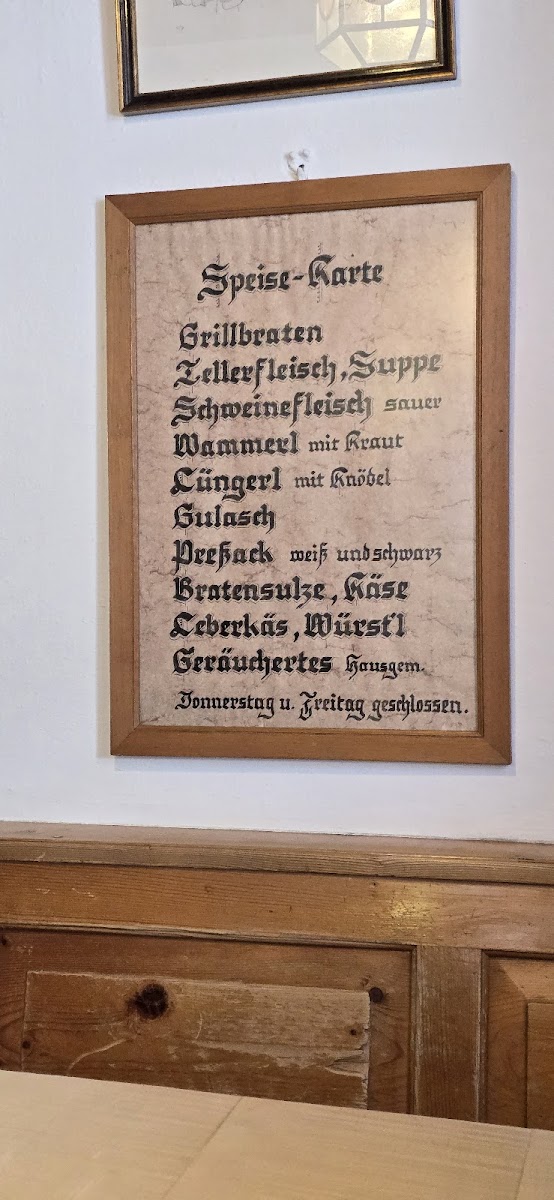 Speise-Karte
Grillbraten
Tellerfleisch, Suppe
Schweinefleisch sauer
Wammerl mit Kraut
Lüngerl mit Knödel
Gulasch
Preßack weiß und schwarz
Bratensulze, Käse
Leberkäs, Würst'l
Geräuchertes Hausgem.
Donnerstag u. Freitag geschlossen.